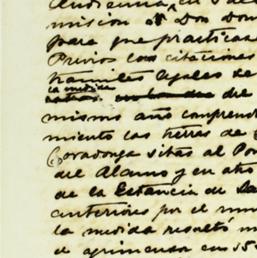 Audiencia, en
mision a Don Dom
para que practicase
Previos con citaciones
tramites legales de
la medida
de
mismo año comprend
miento las tierras de
Covadonga sitas al Pon
del Alamo y en año
de la Estancia de Sa
anteriores por el mu
la medida resultó
el agrimensor en 15